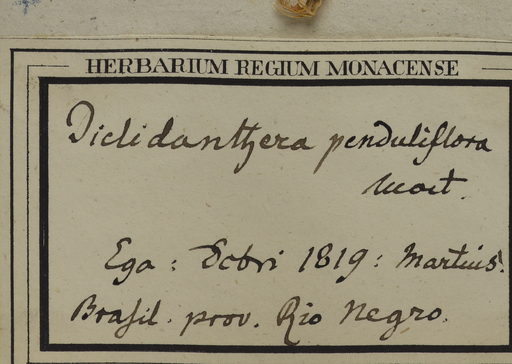 HERBARIUM REGIUM MONACENSE
Diclidanthera penduliflora
Mart.
Ega: Octbri 1819: Martius.
Brasil. prov. Rio Negro.